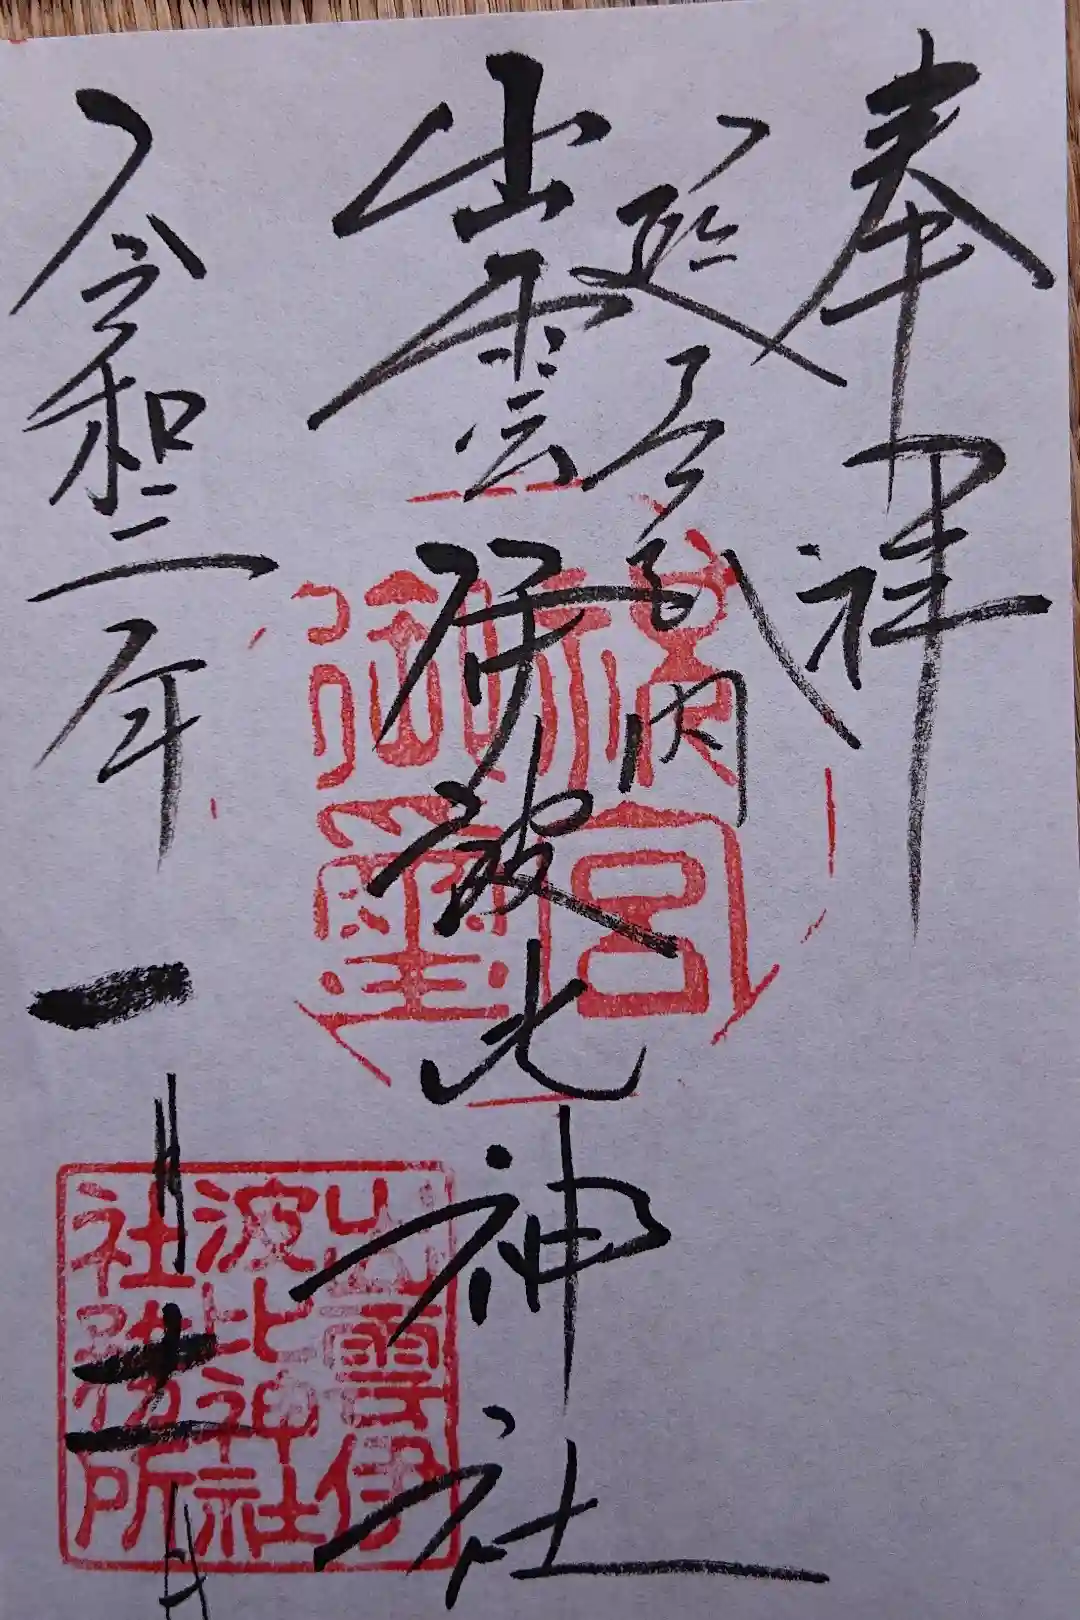 奉拝
延喜式内
出雲伊波比神社
令和二年一月
宮
御璽
出雲伊
波比神社
社務所